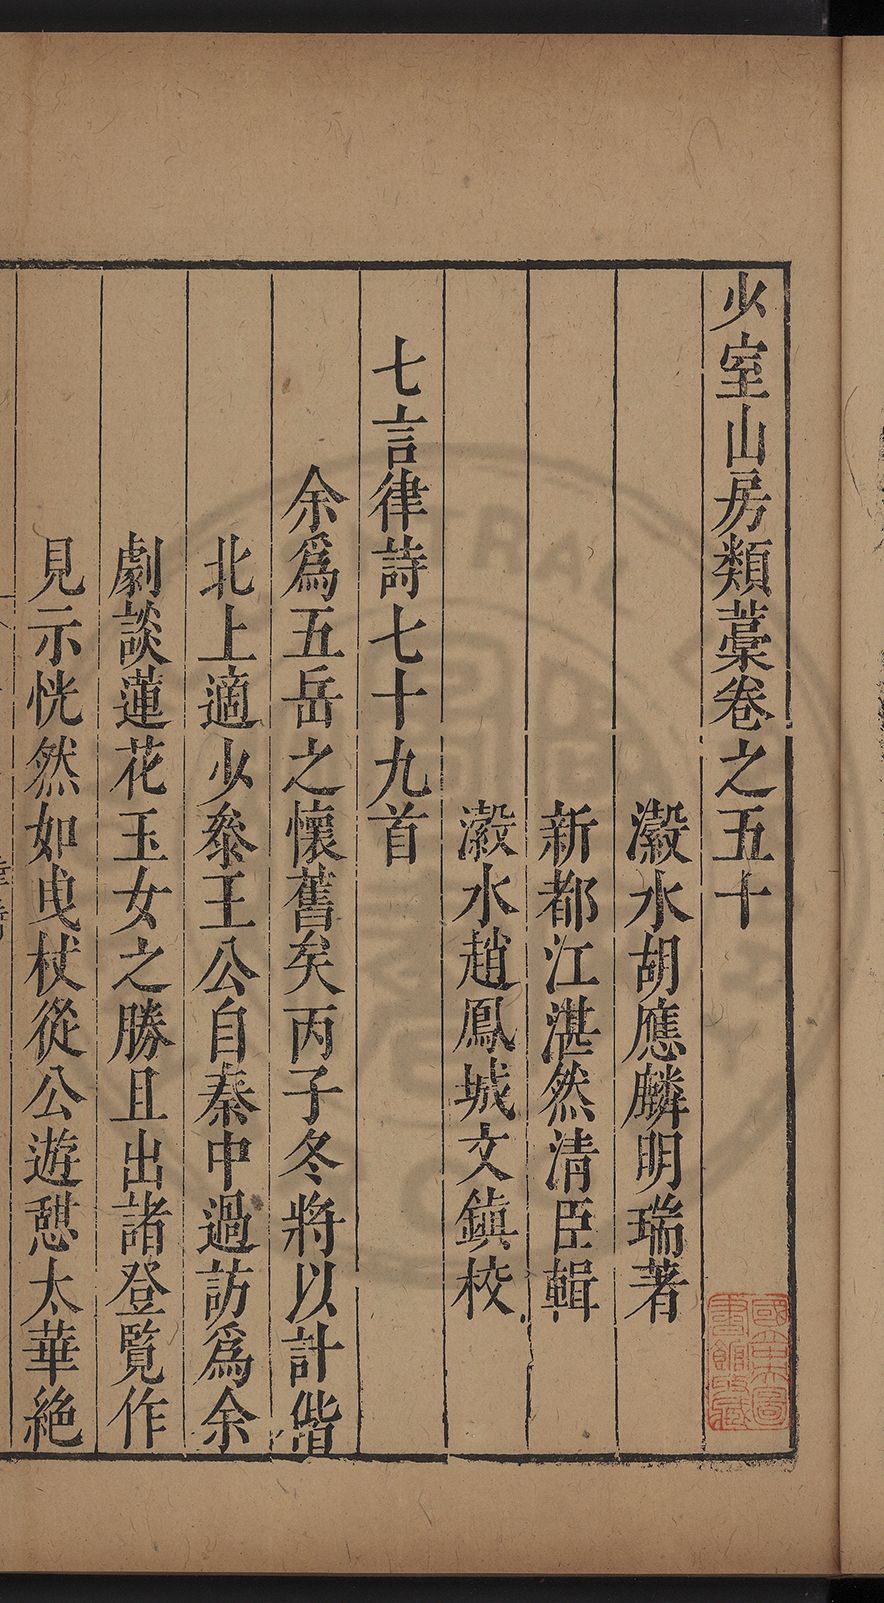 少室山房類藁卷之五十
瀫水胡應麟明瑞著
新都江湛然清臣輯
瀫水趙鳳城文鎮校
七言律詩七十九首
余爲五岳之懷舊矣丙子冬將以計偕
北上適少叅王公自秦中過訪爲余
劇談蓮花玉女之勝且出諸登覽作
見示恍然如曳杖從公遊憇太華絶
國立中央圖
書館收藏